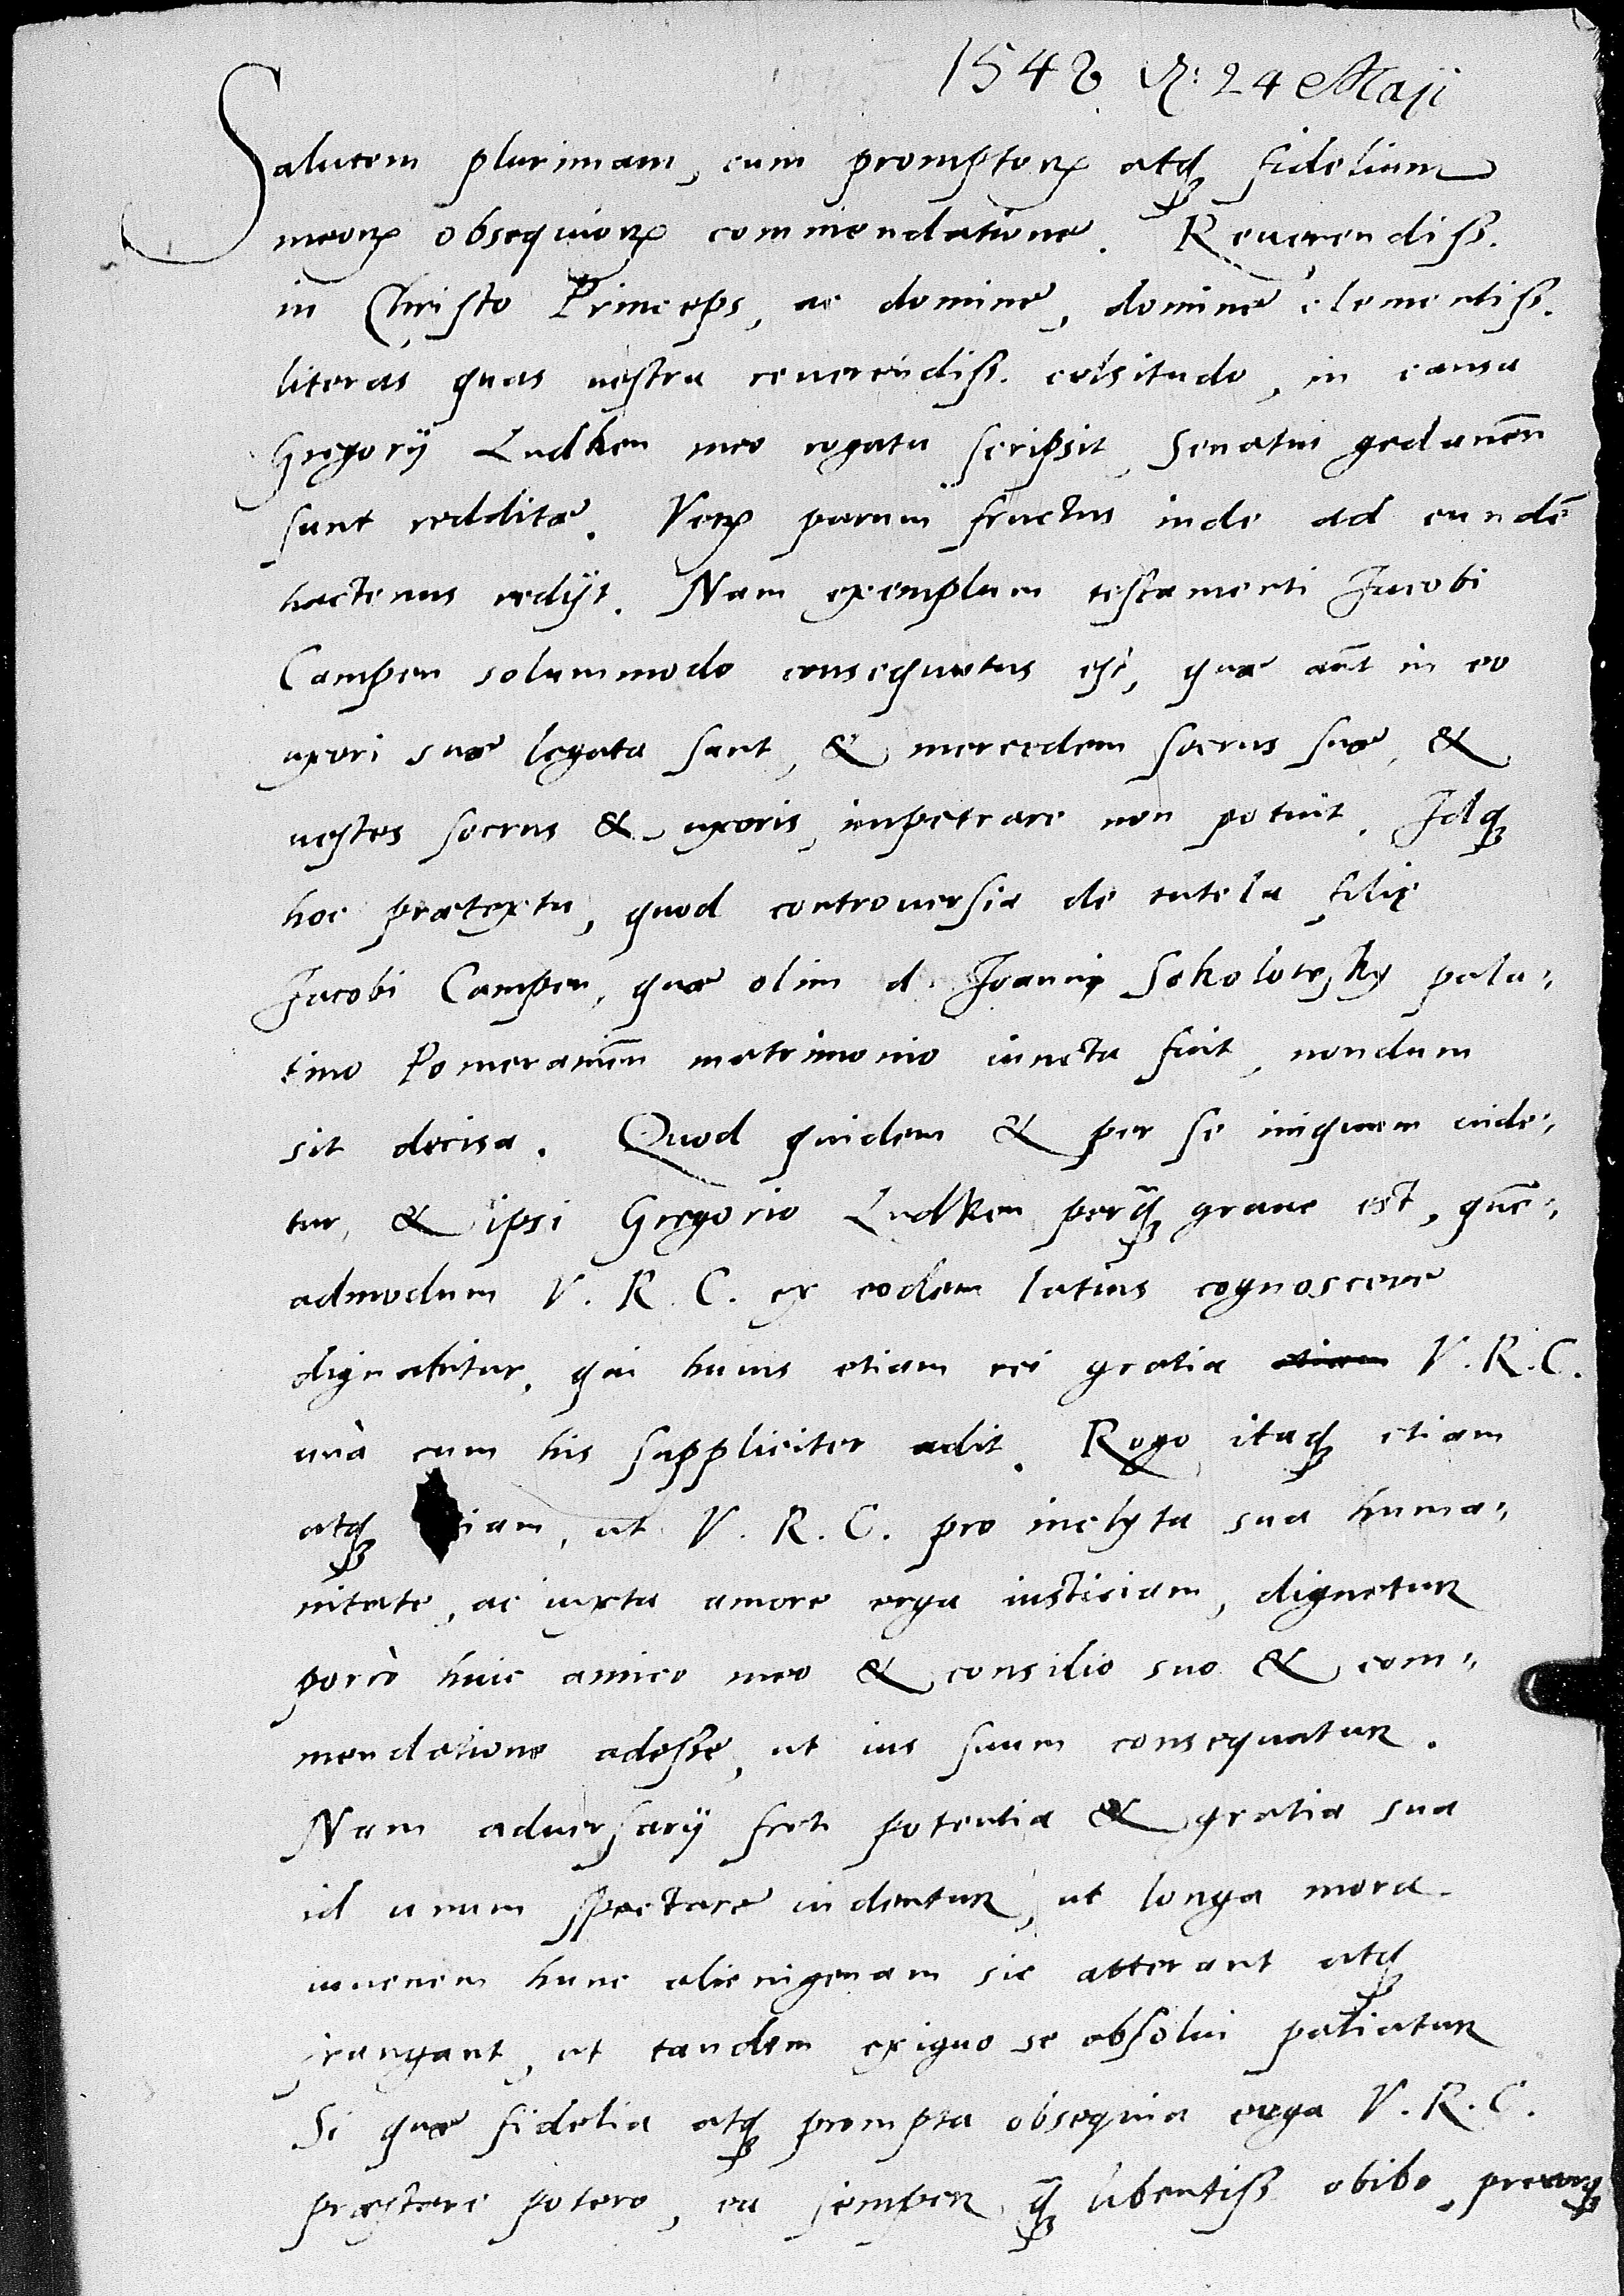 1548 R: 24 Maji
Salutem plurimam, cum promptorꝝ atqꝫ fidelium
meorꝝ obsequiorꝝ commendatione. Reuerendiss.
in Christo Princeps, ac domine, domine clementiss.
literas quas uestra reuerendiss. celsitudo, in causa
Gregorÿ Ludken meo rogatu scripsit, senatui gedanen̄
sunt redditæ. Verꝝ parum fructus inde ad eundē
hactenus redÿt. Nam exemplum testamenti Jacobi
Campen solummodo consequutus est, quæ aūt in eo
uxori suæ legata sunt, & mercedem socrus suæ, &
uestes socrus & uxoris, impetrare non potuit. Idqꝫ
hoc prætextu, quod controuersia de tutela filię
Jacobi Campen, quæ olim d. Joanni Sokolowsky pala⸗
tino Pomeranien̄ matrimonio iuncta fuit, nondum
sit decisa. Quod quidem & per se iniquum uide⸗
tur, & ipsi Gregorio Ludken perq̄ꝫ graue est, quē⸗
admodum V. R. C. ex eodem latius cognoscere
dignabitur, qui huius etiam rei gratia etiam V. R. C.
unà cum his suppliciter adit. Rogo itaqꝫ etiam
atqꝫ etiam, ut V. R. C. pro inclyta sua huma⸗
nitate, ac iuxta amore erga iusticiam, dignetur
porrò huic amico meo & consilio suo & com⸗
mendatione adesse, ut ius suum consequatur.
Nam aduersarÿ freti potentia & gratia sua
id unum spectare uidentur, ut longa mora
iuuenem hunc alienigenam sic atterant atqꝫ
frangant, ut tandem exiguo se absolui patiatur
Si quæ fidelia atqꝫ prompta obsequia erga V. R. C.
præstare potero, ea semper q̄ꝫ lubentiss obibo,